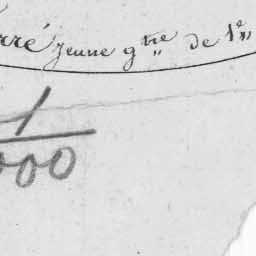 rré jeune g^re de 1^e
1
000